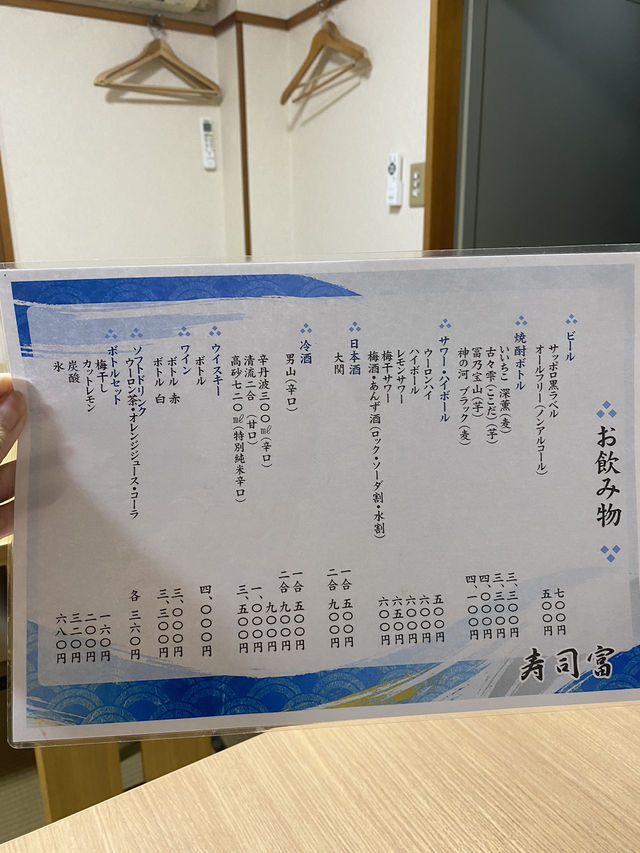 お飲み物
ビール
サッポロ黒ラベル 七〇〇円
オールフリー(ノンアルコール) 五〇〇円
焼酎ボトル
いいちこ 深薫(麦) 三、三〇〇円
古々雫(ここだ)(芋) 三、三〇〇円
冨乃宝山(芋) 四、〇〇〇円
神の河 ブラック(麦) 四、一〇〇円
サワー・ハイボール
ウーロンハイ 五〇〇円
ハイボール 六〇〇円
レモンサワー 六〇〇円
梅干サワー 六五〇円
梅酒・あんず酒(ロック・ソーダ割・水割) 六〇〇円
日本酒
大関 一合 五〇〇円
二合 九〇〇円
冷酒
男山(辛口) 一合 五〇〇円
二合 九〇〇円
辛丹波三〇〇㎖(辛口) 九〇〇円
清流二合 (甘口) 一、〇〇〇円
高砂七二〇㎖(特別純米辛口) 三、五〇〇円
ウイスキー
ボトル 四、〇〇〇円
ワイン
ボトル 赤 三、〇〇〇円
ボトル 白 三、三〇〇円
ソフトドリンク
ウーロン茶・オレンジジュース・コーラ 各 三六〇円
ボトルセット
梅干し 一六〇円
カットレモン 二〇〇円
炭酸 三二〇円
氷 六八〇円
寿司富